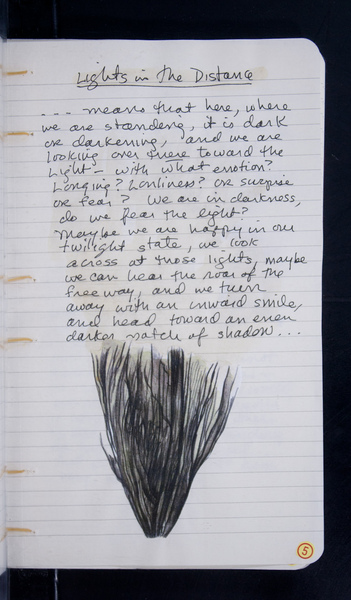 Lights in the Distance
... means that here, where
we are standing, it is dark
or darkening, and we are
looking over there toward the
light – with what emotion?
Longing? Lonliness? or surprise
or fear? We are in darkness,
do we fear the light?
Maybe we are happy in our
twilight state, we look
across at those lights, maybe
we can hear the roar of the
freeway, and we turn
away with an inward smile,
and head toward an even
darker patch of shadow...
5